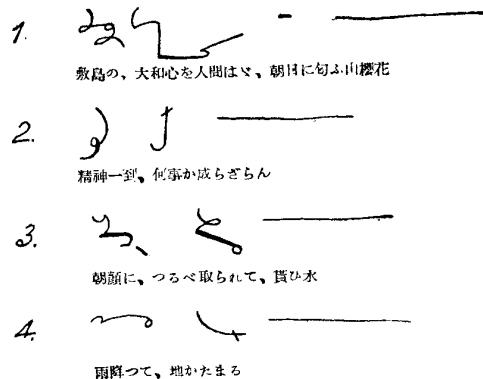 1.
敷島の、大和心を人間はゞ、朝日に匂ふ山櫻花
2.
精神一到、何事か成らざらん
3.
朝顔に、つるべ取られて、貰ひ水
4.
雨降つて、地かたまる